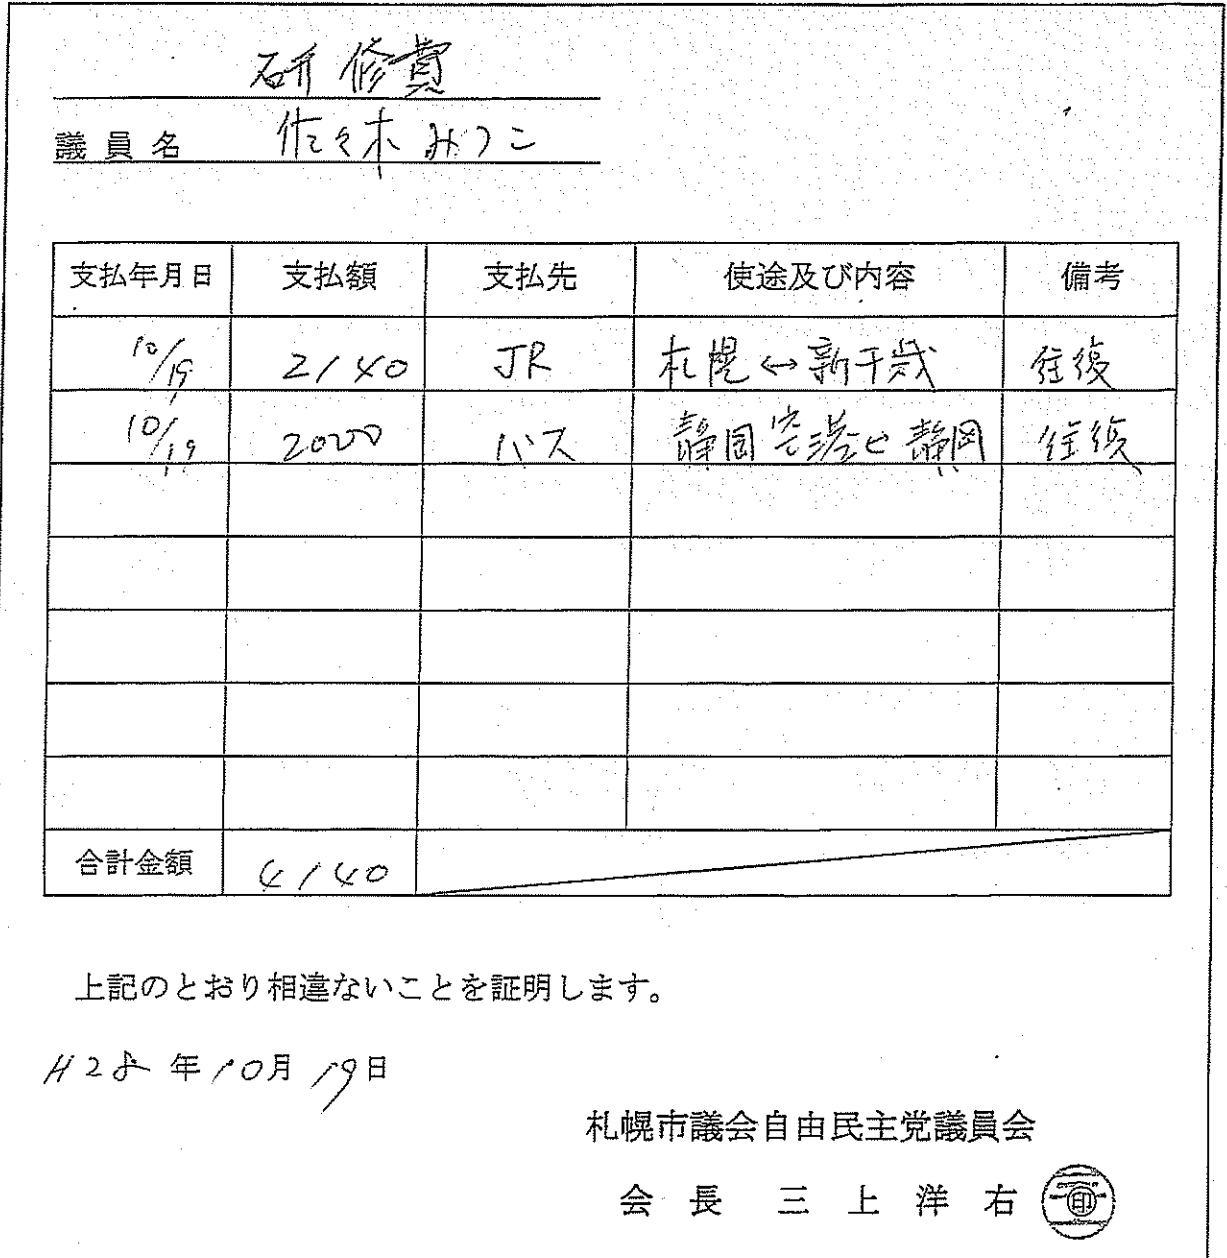 研修費
議員名 佐々木みつこ
支払年月日 支払額 支払先 使途及び内容 備考
10/19 2140 JR 札幌↔新千歳 往復
10/19 2000 バス 静岡空港 静岡 往復
合計金額 4140
上記のとおり相違ないことを証明します。
H28年10月19日
札幌市議会自由民主党議員会
会長 三上洋右 印